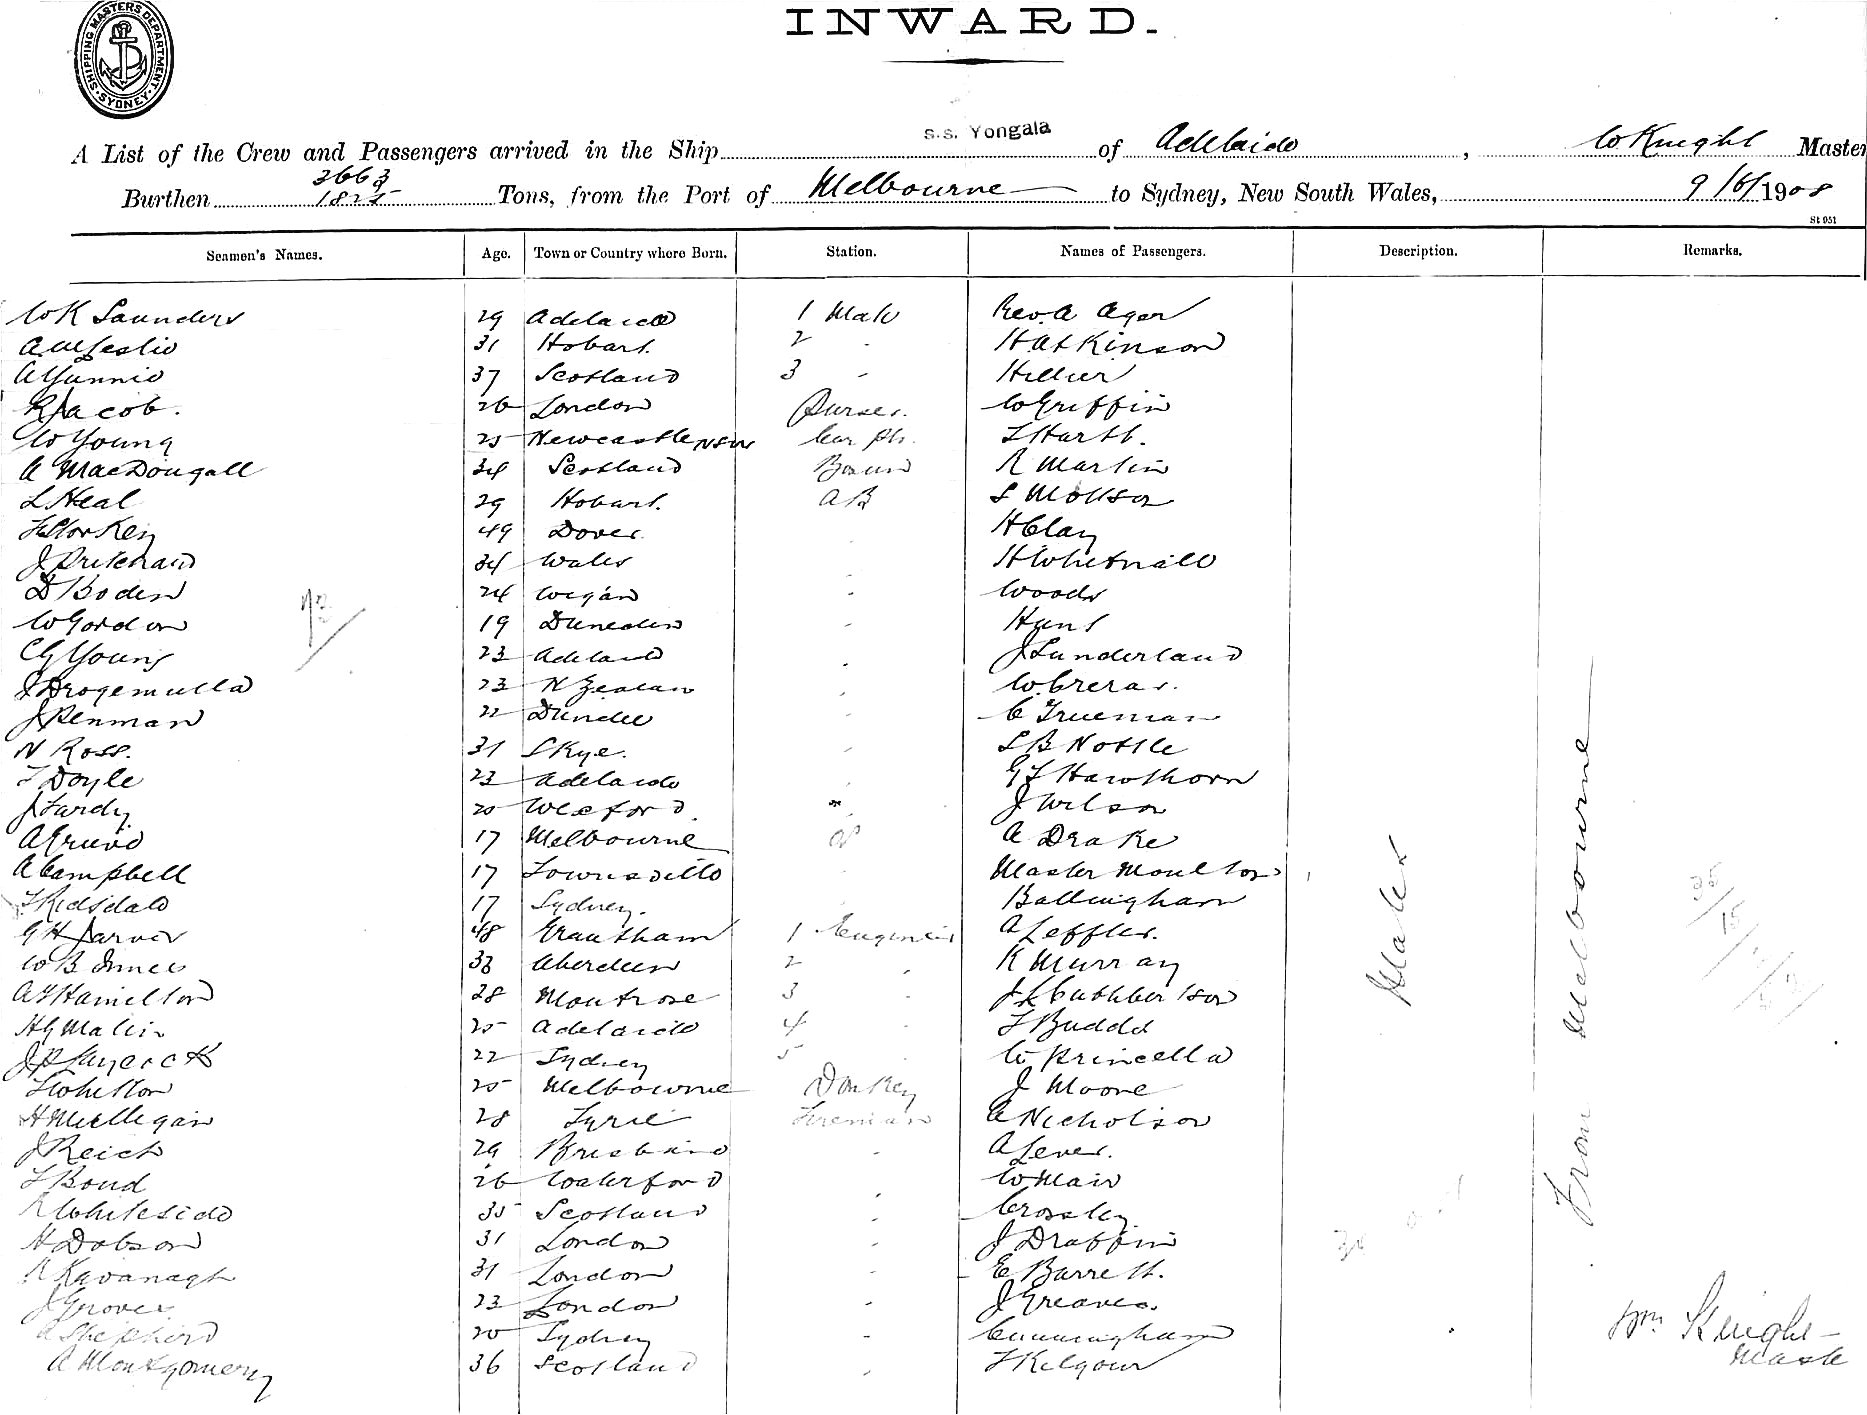 SHIPPING MASTERS DEPARTMENT. SYDNEY
INWARD.
A List of the Crew and Passengers arrived in the Ship s.s. Yongala of Adelaide, W Knight Master
Burthen 3663 1825 Tons, from the Port of Melbourne to Sydney, New South Wales, 9/6/1908
St 951
Seamen's Names. Age. Town or Country where Born. Station. Names of Passengers. Description. Remarks.
W K Saunders 29 Adelaide 1 Mate Rev. A Ager
A M Leslie 31 Hobart 2 - H Atkinson
A Gunnio 37 Scotland 3 - Hillier
R Jacob. 26 London Purser. W Griffin
W Young 25 Newcastle NSW Carptr. T Hartt.
A MacDougall 34 Scotland Bosun R Martin
L Heal 29 Hobart. A B S
H Storkey 49 Dover H Clay
J Pritchard 34 Wales H Whitnall
D Boden 24 Wigan - Woods
W Gordon 19 Dunedin - Hunt
C G Young 23 Adelaide - J Sunderland
J Drogemulla 23 N Zealand - W. Crerar.
J Penman 22 Dundee - C Trueman
N Ross. 31 Skye. - S B Nottle
T Doyle 23 Adelaide - G T Hawthorn
J Furdy 20 Wexford. " J Wilson
A Gruno 17 Melbourne A Drake
A Campbell 17 Townsville - Master Moulton
T Ridsdale 17 Sydney. - Ballingham
G H Jarvis 48 Grantham 1 Engineer A Leffler.
W B Innes 33 Aberdeen 2 - R Murray
A F Hamilton 28 Montrose 3 - J L Cuthbertson
H G Malin 25 Adelaide 4 - T Budds
J P Laycock 22 Sydney 5 - W Princella
T Whitton 25 Melbourne Donkey J Moore
H Mulligan 28 Tyrie Fireman A Nicholson
J Reich 29 Brisbane - A Lever.
T Bond 26 Waterford - W Mair
R Whiteside 35 Scotland - Crossley
H Dobson 31 London - J Draffin
R Kavanagh 31 London - E Barrett.
J Grover 23 London - J Greaves.
A Shepherd 20 Sydney - Cunningham
A Montgomery 36 Scotland - T Kilgour
Males
From Melbourne
Wm Knight
Master